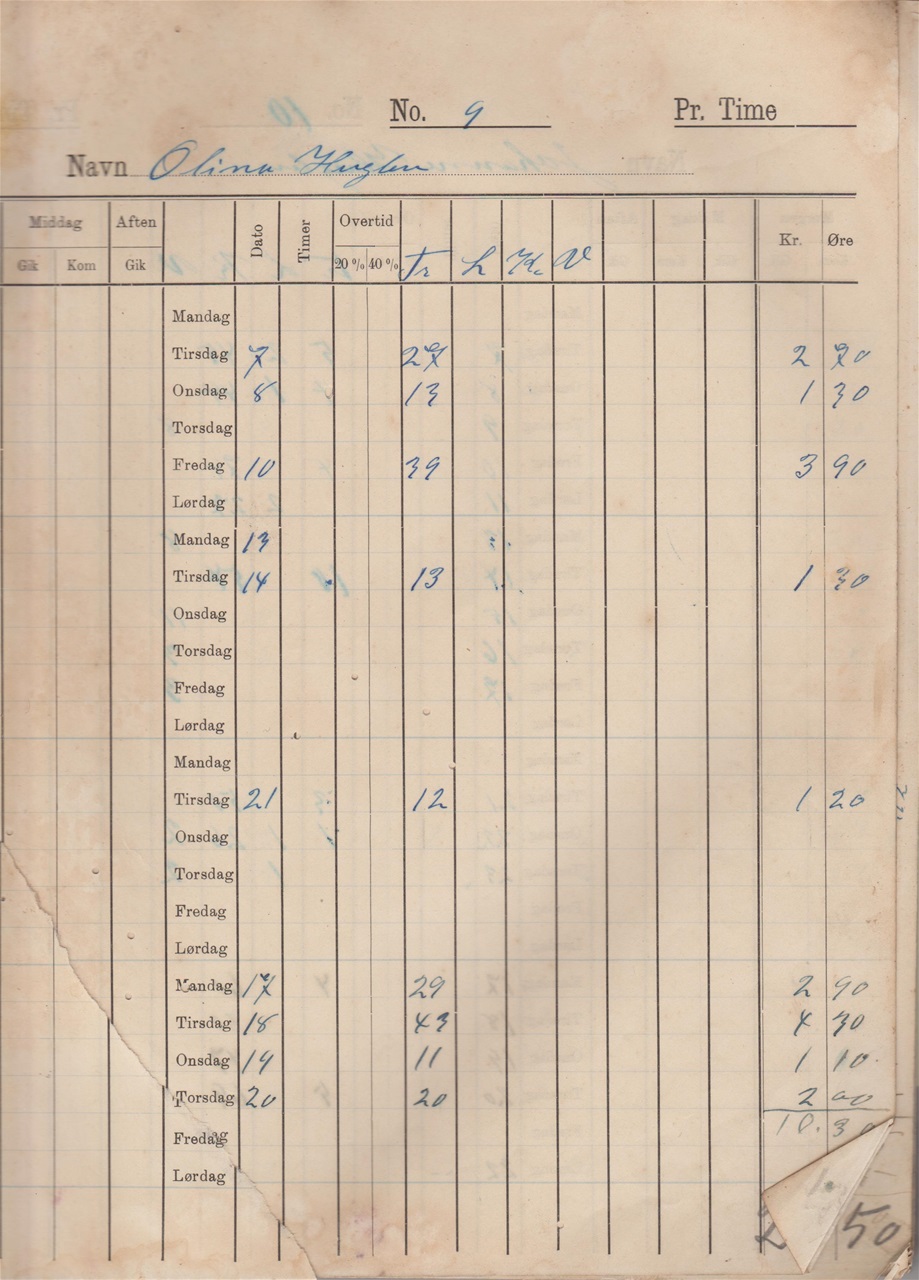 No. 9 Pr. Time
Navn Olina Huglen
Middag Aften Dato Timer Overtid Kr. Øre
Gik Kom Gik 20 % 40 % Tr L K. V
Mandag
Tirsdag 7 27 2 70
Onsdag 8 13 1 30
Torsdag
Fredag 10 39 3 90
Lørdag
Mandag 13
Tirsdag 14 13 1 30
Onsdag
Torsdag
Fredag
Lørdag
Mandag
Tirsdag 21 12 1 20
Onsdag
Torsdag
Fredag
Lørdag
Mandag 17 29 2 90
Tirsdag 18 43 4 30
Onsdag 19 11 1 10
Torsdag 20 20 2 00
10.30
Fredag
Lørdag
50